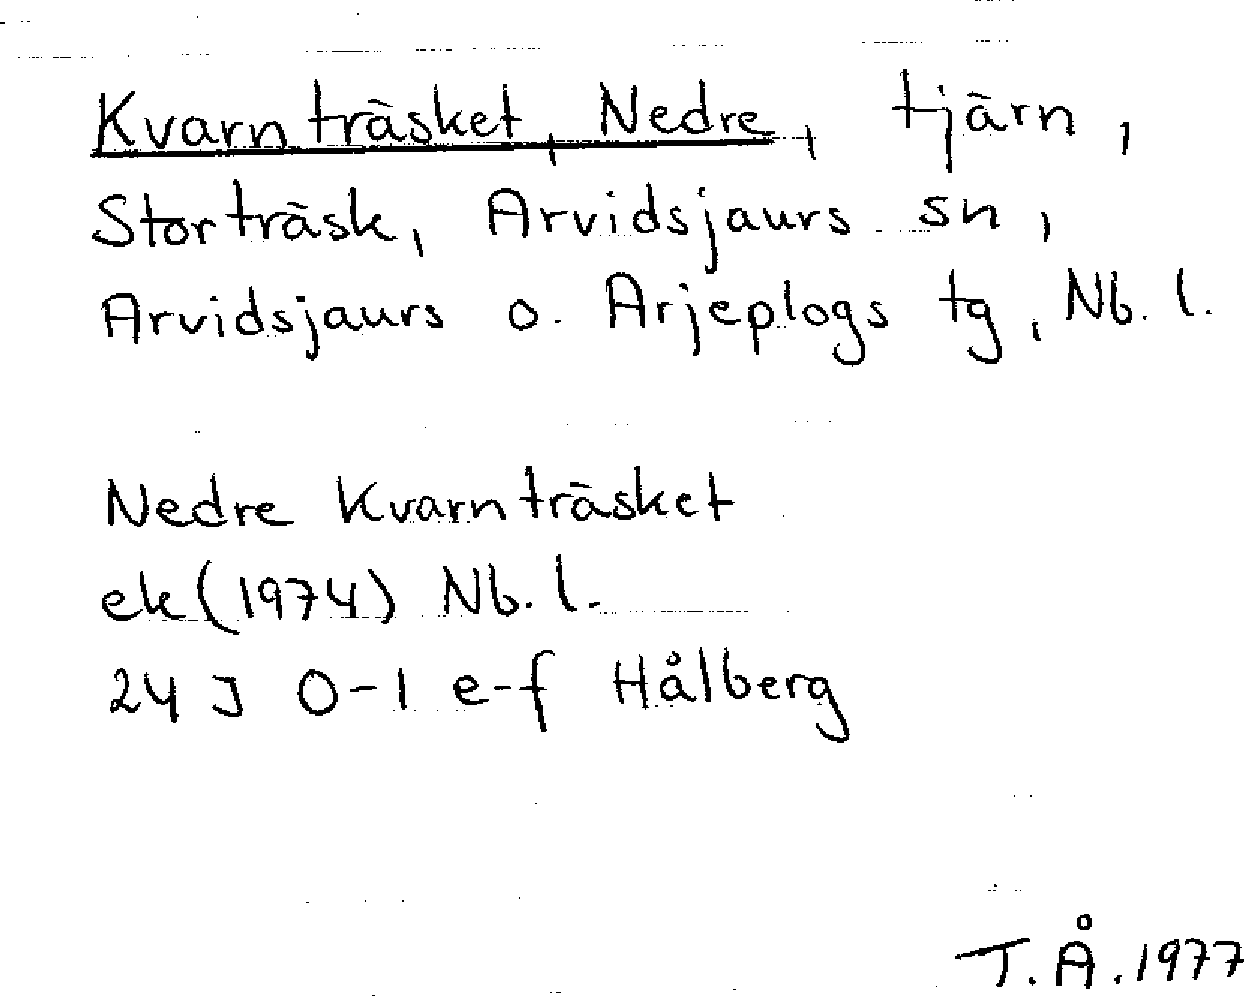 Kvarnträsket, Nedre, tjärn,
Storträsk, Arvidsjaurs sn,
Arvidsjaurs o. Arjeplogs tg, Nb. l.
Nedre Kvarnträsket
ek (1974) Nb. l.
24 J 0-1 e-f Hålberg
T. Å. 1977